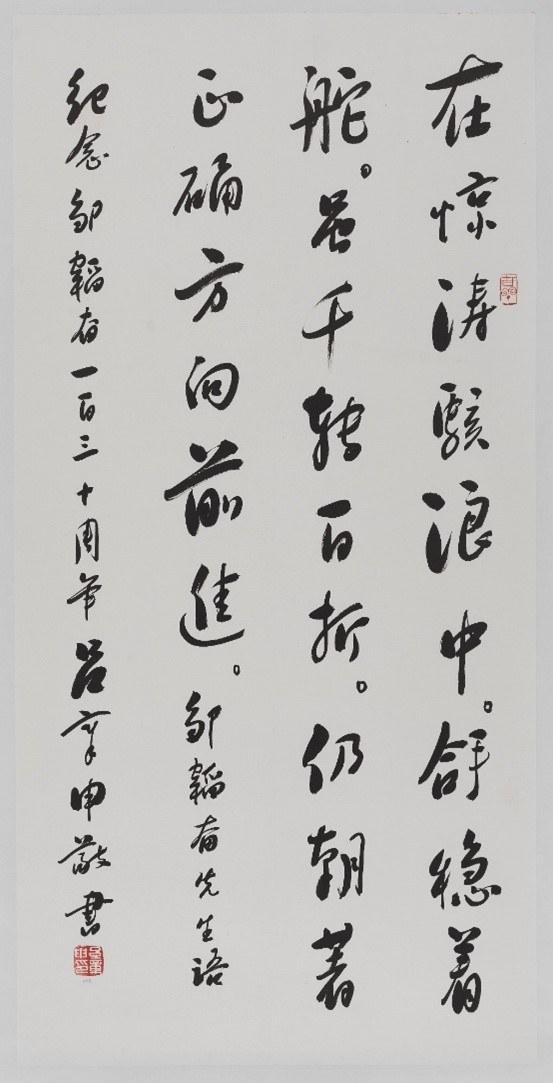 在惊涛骇浪中。拿稳着
舵。虽千转百折。仍朝著
正确方向前進。邹韜奋先生语
纪念邹韜奋一百三十周年吕章申敬書